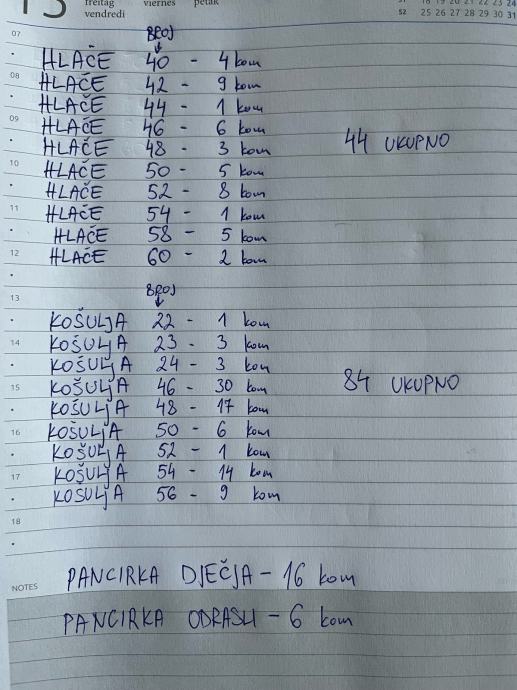 freitag viernes petak
vendredi
52 25 26 27 28 29 30 31
07
BROJ
HLAČE 40 - 4 kom
08
HLAČE 42 - 9 kom
HLAČE 44 - 1 kom
09
HLAČE 46 - 6 kom
HLAČE 48 - 3 kom 44 UKUPNO
10
HLAČE 50 - 5 kom
HLAČE 52 - 8 kom
11
HLAČE 54 - 1 kom
HLAČE 58 - 5 kom
12
HLAČE 60 - 2 kom
BROJ
13
KOŠULJA 22 - 1 kom
14
KOŠULJA 23 - 3 kom
KOŠULJA 24 - 3 kom
15
KOŠULJA 46 - 30 kom 84 UKUPNO
KOŠULJA 48 - 17 kom
16
KOŠULJA 50 - 6 kom
KOŠULJA 52 - 1 kom
17
KOŠULJA 54 - 14 kom
KOSULJA 56 - 9 kom
18
PANCIRKA DJEČJA - 16 kom
NOTES
PANCIRKA ODRASLI - 6 kom